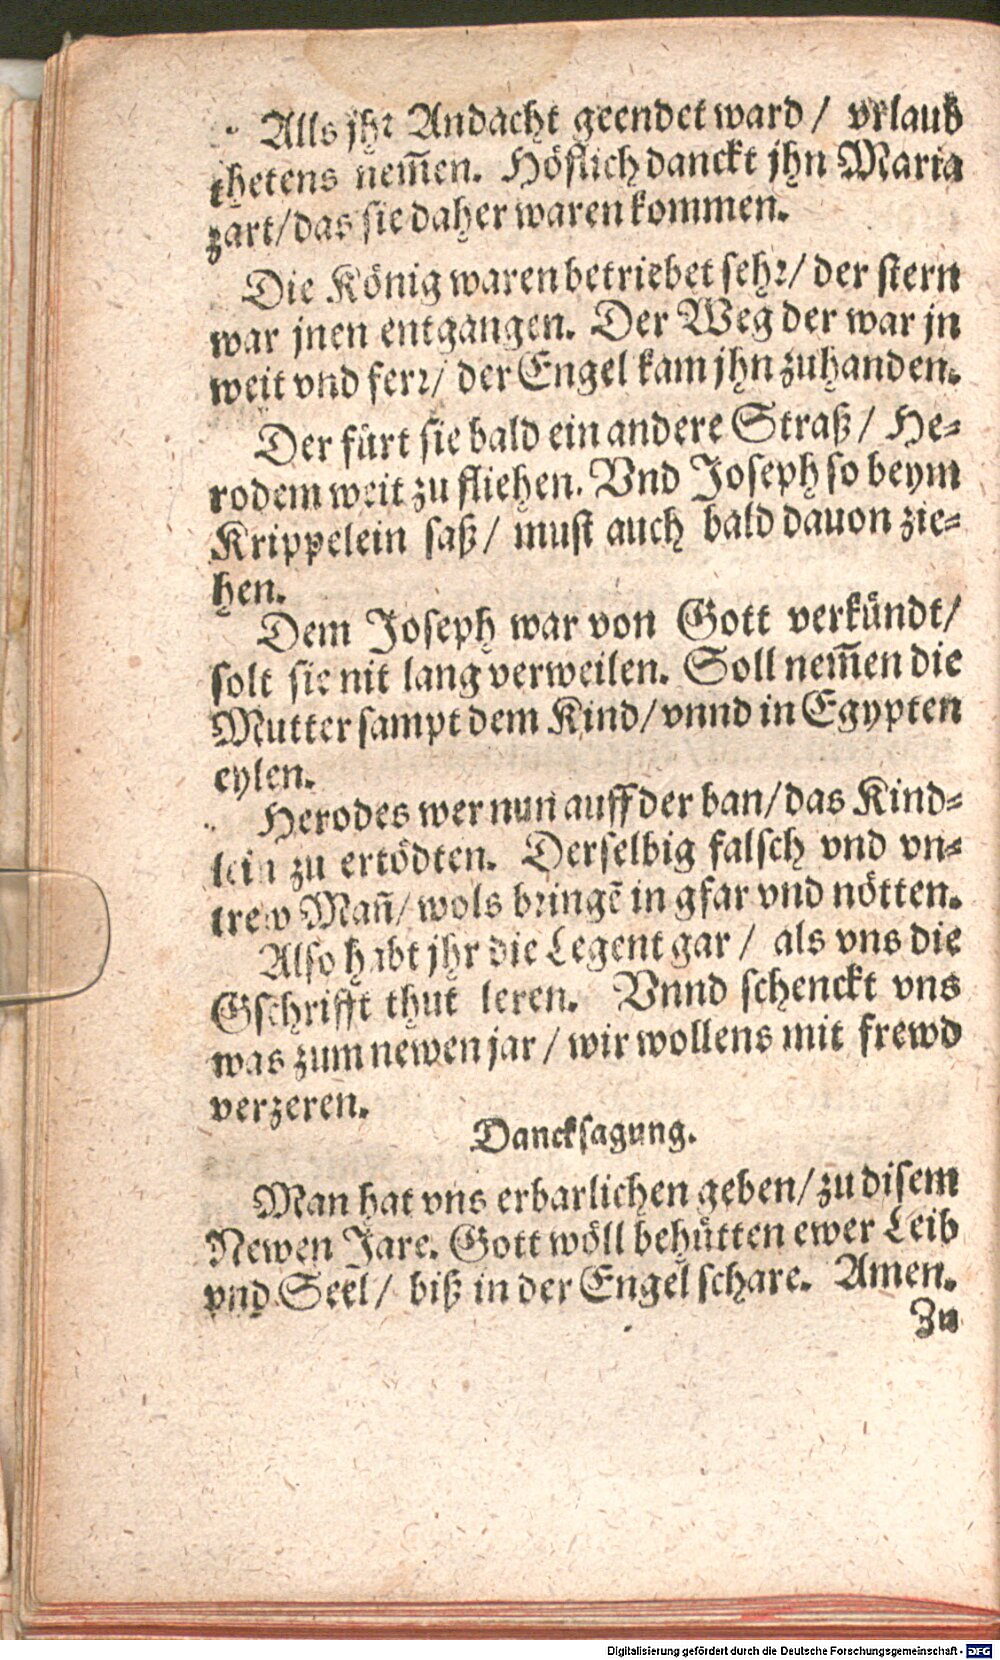 Alls jhr Andacht geendet ward / vrlaub
thetens nem̃en. Höflich danckt jhn Maria
zart/das sie daher waren kommen.
Die König waren betriebet sehr/ der stern
war jnen entgangen. Der Weg der war jn
weit vnd ferr/ der Engel kam jhn zuhanden.
Der fürt sie bald ein andere Straß/ He-
rodem weit zu fliehen. Vnd Joseph so beym
Krippelein saß/ must auch bald dauon zie-
hen.
Dem Joseph war von Gott verkündt/
solt sie nit lang verweilen. Soll nem̃en die
Mutter sampt dem Kind/ vnnd in Egypten
eylen.
Herodes wer nun auff der ban/das Kind-
lein zu ertödten. Derselbig falsch vnd vn-
trew Mañ/ wols bringẽ in gfar vnd nötten.
Also habt jhr die Legent gar / als vns die
Gschrifft thut leren. Vnnd schenckt vns
was zum newen jar / wir wollens mit frewd
verzeren.
Dancksagung.
Man hat vns erbarlichen geben/ zu disem
Newen Jare. Gott wöll behütten ewer Leib
vnd Seel/ biß in der Engel schare. Amen.
Zu
Digitalisierung gefördert durch die Deutsche Forschungsgemeinschaft - DFG